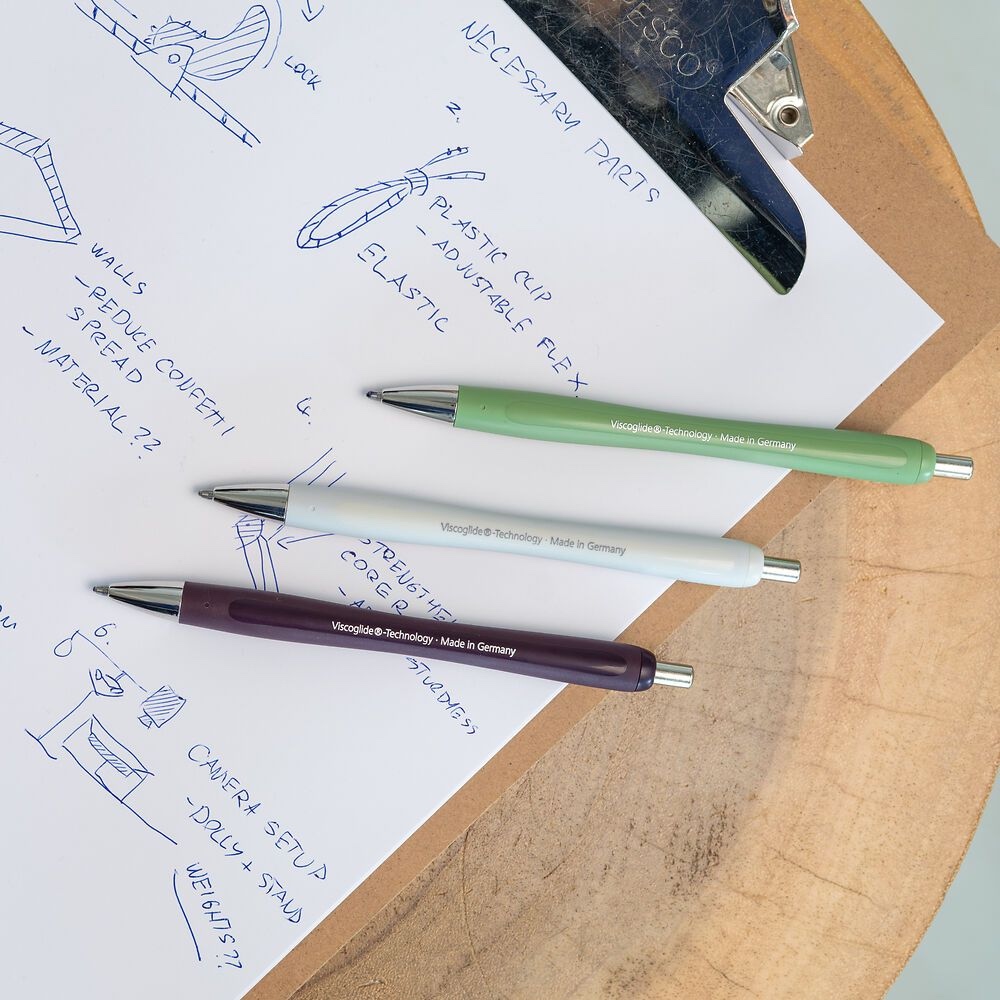 NECESSARY PARTS
LOCK
2.
PLASTIC CLIP
- ADJUSTABLE FLEX
ELASTIC
WALLS
- REDUCE CONFETTI
SPREAD
- MATERIAL ??
4.
CORE
STURDINESS
6.
CAMERA SETUP
- DOLLY + STAND
WEIGHTS??
ESCO
Viscoglide®-Technology · Made in Germany
Viscoglide®-Technology · Made in Germany
Viscoglide®-Technology · Made in Germany